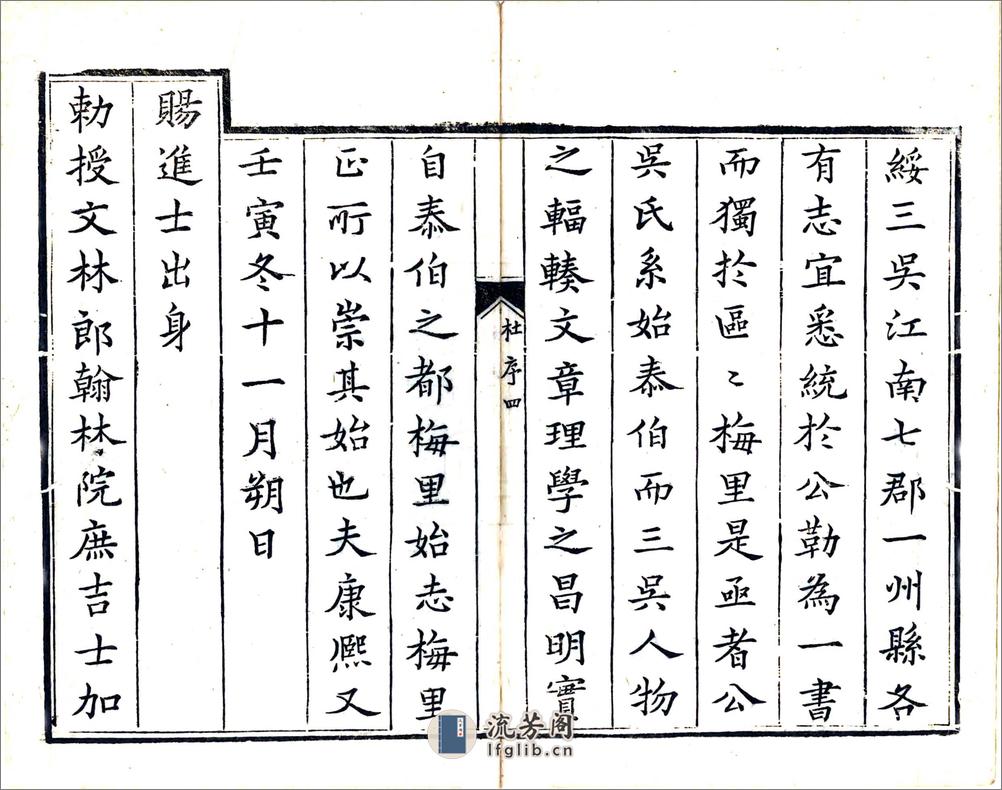 綏三吳江南七郡一州縣各
有志宜悉統於公勒為一書
而獨於區〻梅里是亟者公
吳氏系始泰伯而三吳人物
之輻輳文章理學之昌明實
杜序四
自泰伯之都梅里始志梅里
正所以崇其始也夫康熈又
壬寅冬十一月朔日
賜進士出身
勅授文林郎翰林院庶吉士加
流芳阁
lfglib.cn